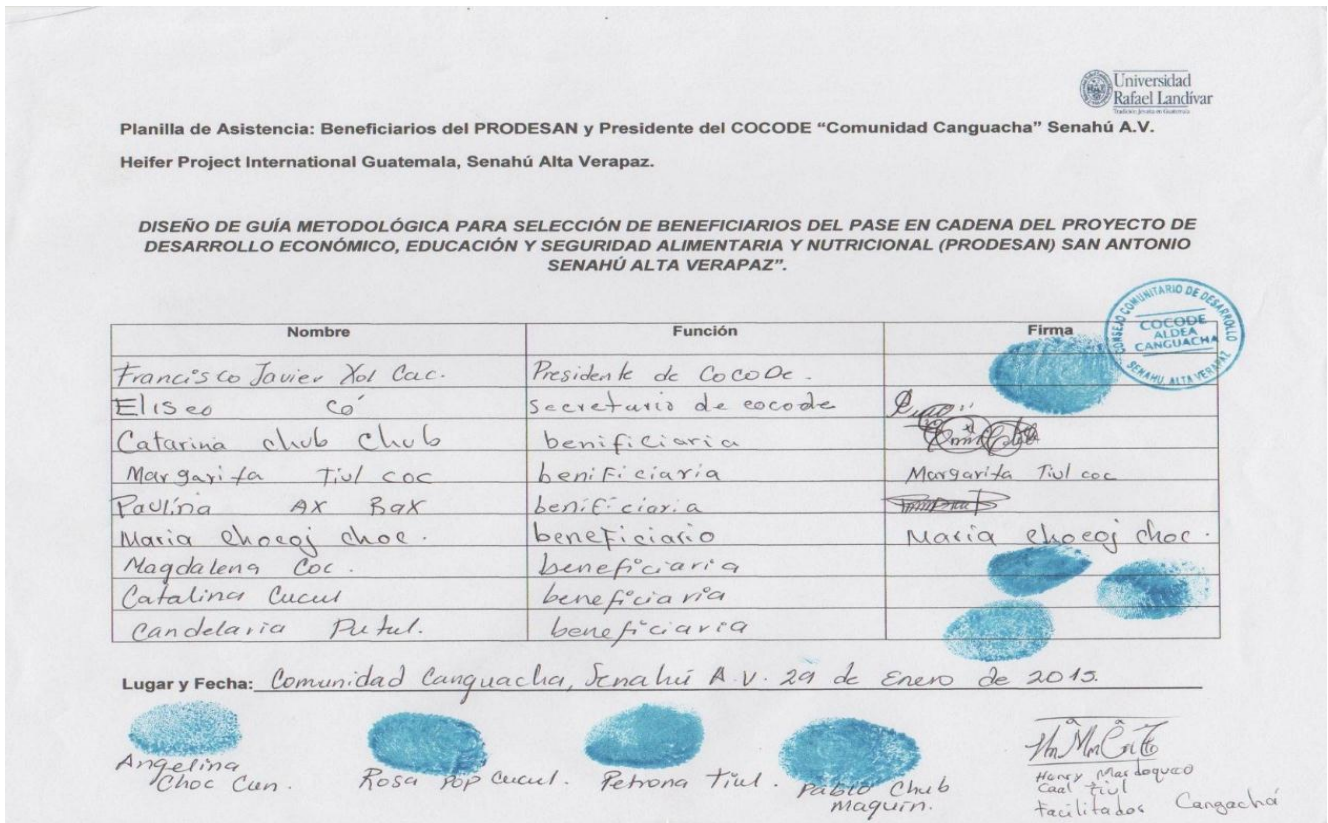 Universidad
Rafael Landívar
Tradición Jesuita en Guatemala
Planilla de Asistencia: Beneficiarios del PRODESAN y Presidente del COCODE “Comunidad Canguacha” Senahú A.V.
Heifer Project International Guatemala, Senahú Alta Verapaz.
DISEÑO DE GUÍA METODOLÓGICA PARA SELECCIÓN DE BENEFICIARIOS DEL PASE EN CADENA DEL PROYECTO DE
DESARROLLO ECONÓMICO, EDUCACIÓN Y SEGURIDAD ALIMENTARIA Y NUTRICIONAL (PRODESAN) SAN ANTONIO
SENAHÚ ALTA VERAPAZ”.
CONSEJO COMUNITARIO DE DESARROLLO
COCODE
ALDEA
CANGUACHA
SENAHU, ALTA VERAPAZ
Nombre Función Firma
Francisco Javier Xol Cac. Presidente de CoCoDe.
Eliseo Có Secretario de cocode
Catarina chub Chub benificiaria
Margarita Tiul coc benificiaria Margarita Tiul coc
Paulina Ax Bax benificiaria
Maria Chocoj choc. beneficiario Maria Chocoj choc.
Magdalena Coc. beneficiaria
Catalina Cucul beneficiaria
Candelaria Putul. beneficiaria
Lugar y Fecha: Comunidad Canguacha, Senahú A.V. 29 de Enero de 2015.
Angelina
Choc Cun.
Rosa Pop Cucul.
Petrona Tiul.
Pablo Chub
Maquin.
Henry Mardoqueo
Caal Tiul
Facilitador Cangachá